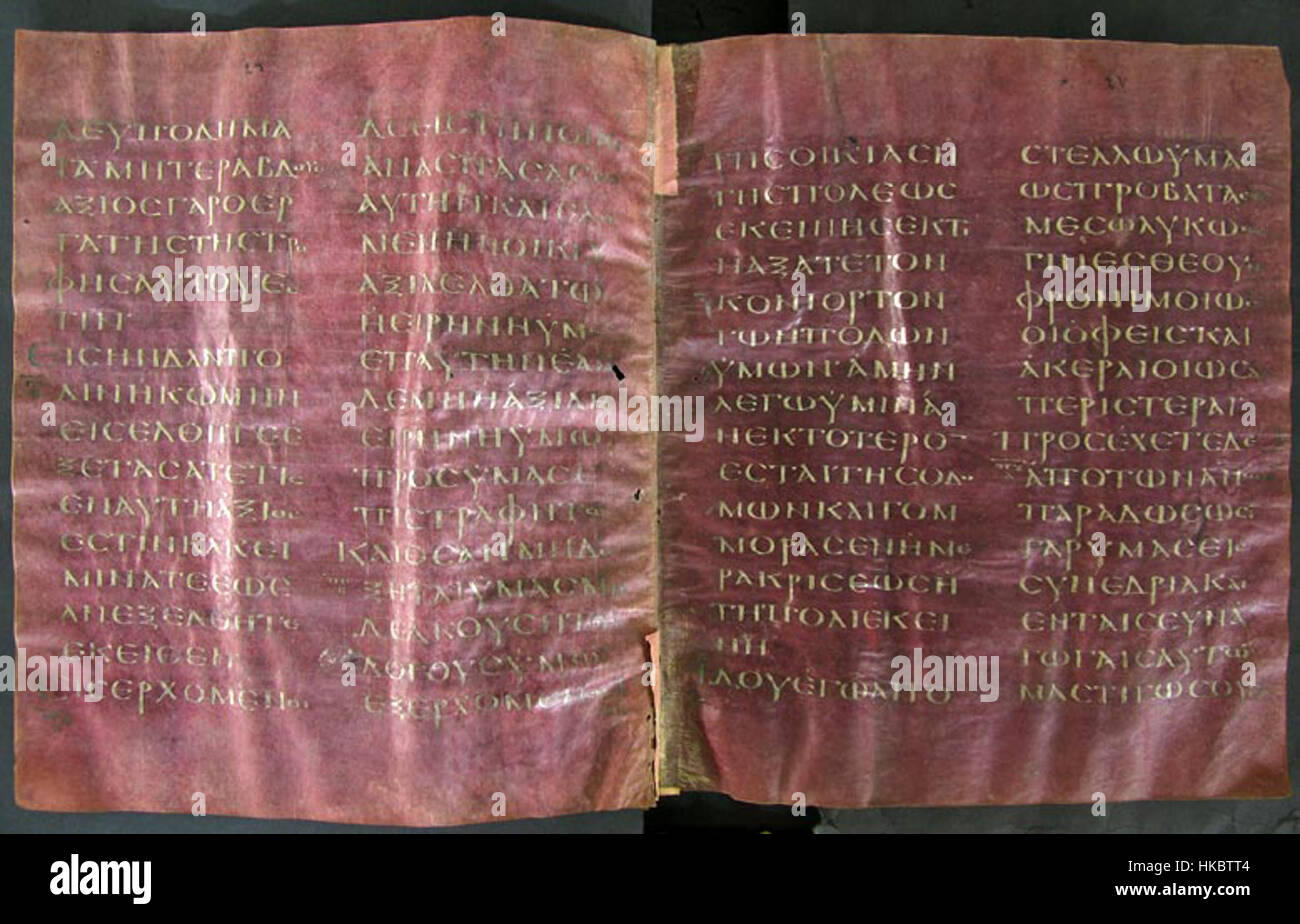 ΔΕΥΠΟΔΗΜΑ
ΤΑΜΗΤΕΡΑΒΔΟΝ
ΑΞΙΟϹΓΑΡΟΕΡ
ΓΑΤΗϹΤΗϹΤΡΟ
ΦΗϹΑΥΤΟΥΕϹ
ΤΙΝ
ΕΙϹΗΝΔΑΝΠΟ
ΛΙΝΗΚΩΜΗΝ
ΕΙϹΕΛΘΗΤΕΕ
ΞΕΤΑϹΑΤΕΤΙϹ
ΕΝΑΥΤΗΑΞΙΟϹ
ΕϹΤΙΝΚΑΚΕΙ
ΜΙΝΑΤΕΕΩϹ
ΑΝΕΞΕΛΘΗΤΕ
ΕΚΕΙΘΕΝ
ΕΙϹΕΡΧΟΜΕΝΟΙ
ΑΝΑϹΠΑϹΑϹΘΕ
ΑΥΤΗΝΚΑΙΕΑ
ΜΕΝΗΗΟΙΚΙΑ
ΑΞΙΑΕΛΘΑΤΩ
ΗΕΙΡΗΝΗΥΜ
ΕΠΑΥΤΗΝΕΑΝ
ΔΕΜΗΗΑΞΙΑΗ
ΕΙΡΗΝΗΥΜΩ
ΠΡΟϹΥΜΑϹΕ
ΠΙϹΤΡΑΦΗΤΩ
ΚΑΙΟϹΑΝΜΗΔΕ
ΞΗΤΑΙΥΜΑϹΜΗ
ΔΕΑΚΟΥϹΗΤΟΥϹ
ΛΟΓΟΥϹΥΜΩΝ
ΕΞΕΡΧΟΜΕΝΟΙ
ΤΗϹΟΙΚΙΑϹΗ
ΤΗϹΠΟΛΕΩϹ
ΕΚΕΙΝΗϹΕΚΤΙ
ΝΑΞΑΤΕΤΟΝ
ΚΟΝΙΟΡΤΟΝ
ΤΩΝΠΟΔΩΝ
ΥΜΩΝΑΜΗΝ
ΛΕΓΩΥΜΙΝΑ
ΝΕΚΤΟΤΕΡΟ
ΕϹΤΑΙΓΗϹΟΔΟ
ΜΩΝΚΑΙΓΟΜ
ΜΟΡΑϹΕΝΗΜΕ
ΡΑΚΡΙϹΕΩϹΗ
ΤΗΠΟΛΙΕΚΕΙ
ΝΗ
ΙΔΟΥΕΓΩΑΠΟ
ϹΤΕΛΛΩΥΜΑ
ΩϹΠΡΟΒΑΤΑΕ
ΜΕϹΩΛΥΚΩ
ΓΙΝΕϹΘΕΟΥ
ΦΡΟΝΙΜΟΙΩ
ΟΙΟΦΕΙϹΚΑΙ
ΑΚΕΡΑΙΟΙΩϹ
ΠΕΡΙϹΤΕΡΑΙ
ΠΡΟϹΕΧΕΤΕΔΕ
ΑΠΟΤΩΝΑΝ
ΠΑΡΑΔΩϹΟΥϹ
ΓΑΡΥΜΑϹΕΙϹ
ϹΥΝΕΔΡΙΑΚΑΙ
ΕΝΤΑΙϹϹΥΝΑ
ΓΩΓΑΙϹΑΥΤΩ
ΜΑϹΤΙΓΩϹΟΥ
alamy
a
alamy stock photo
HKBTT4
www.alamy.com